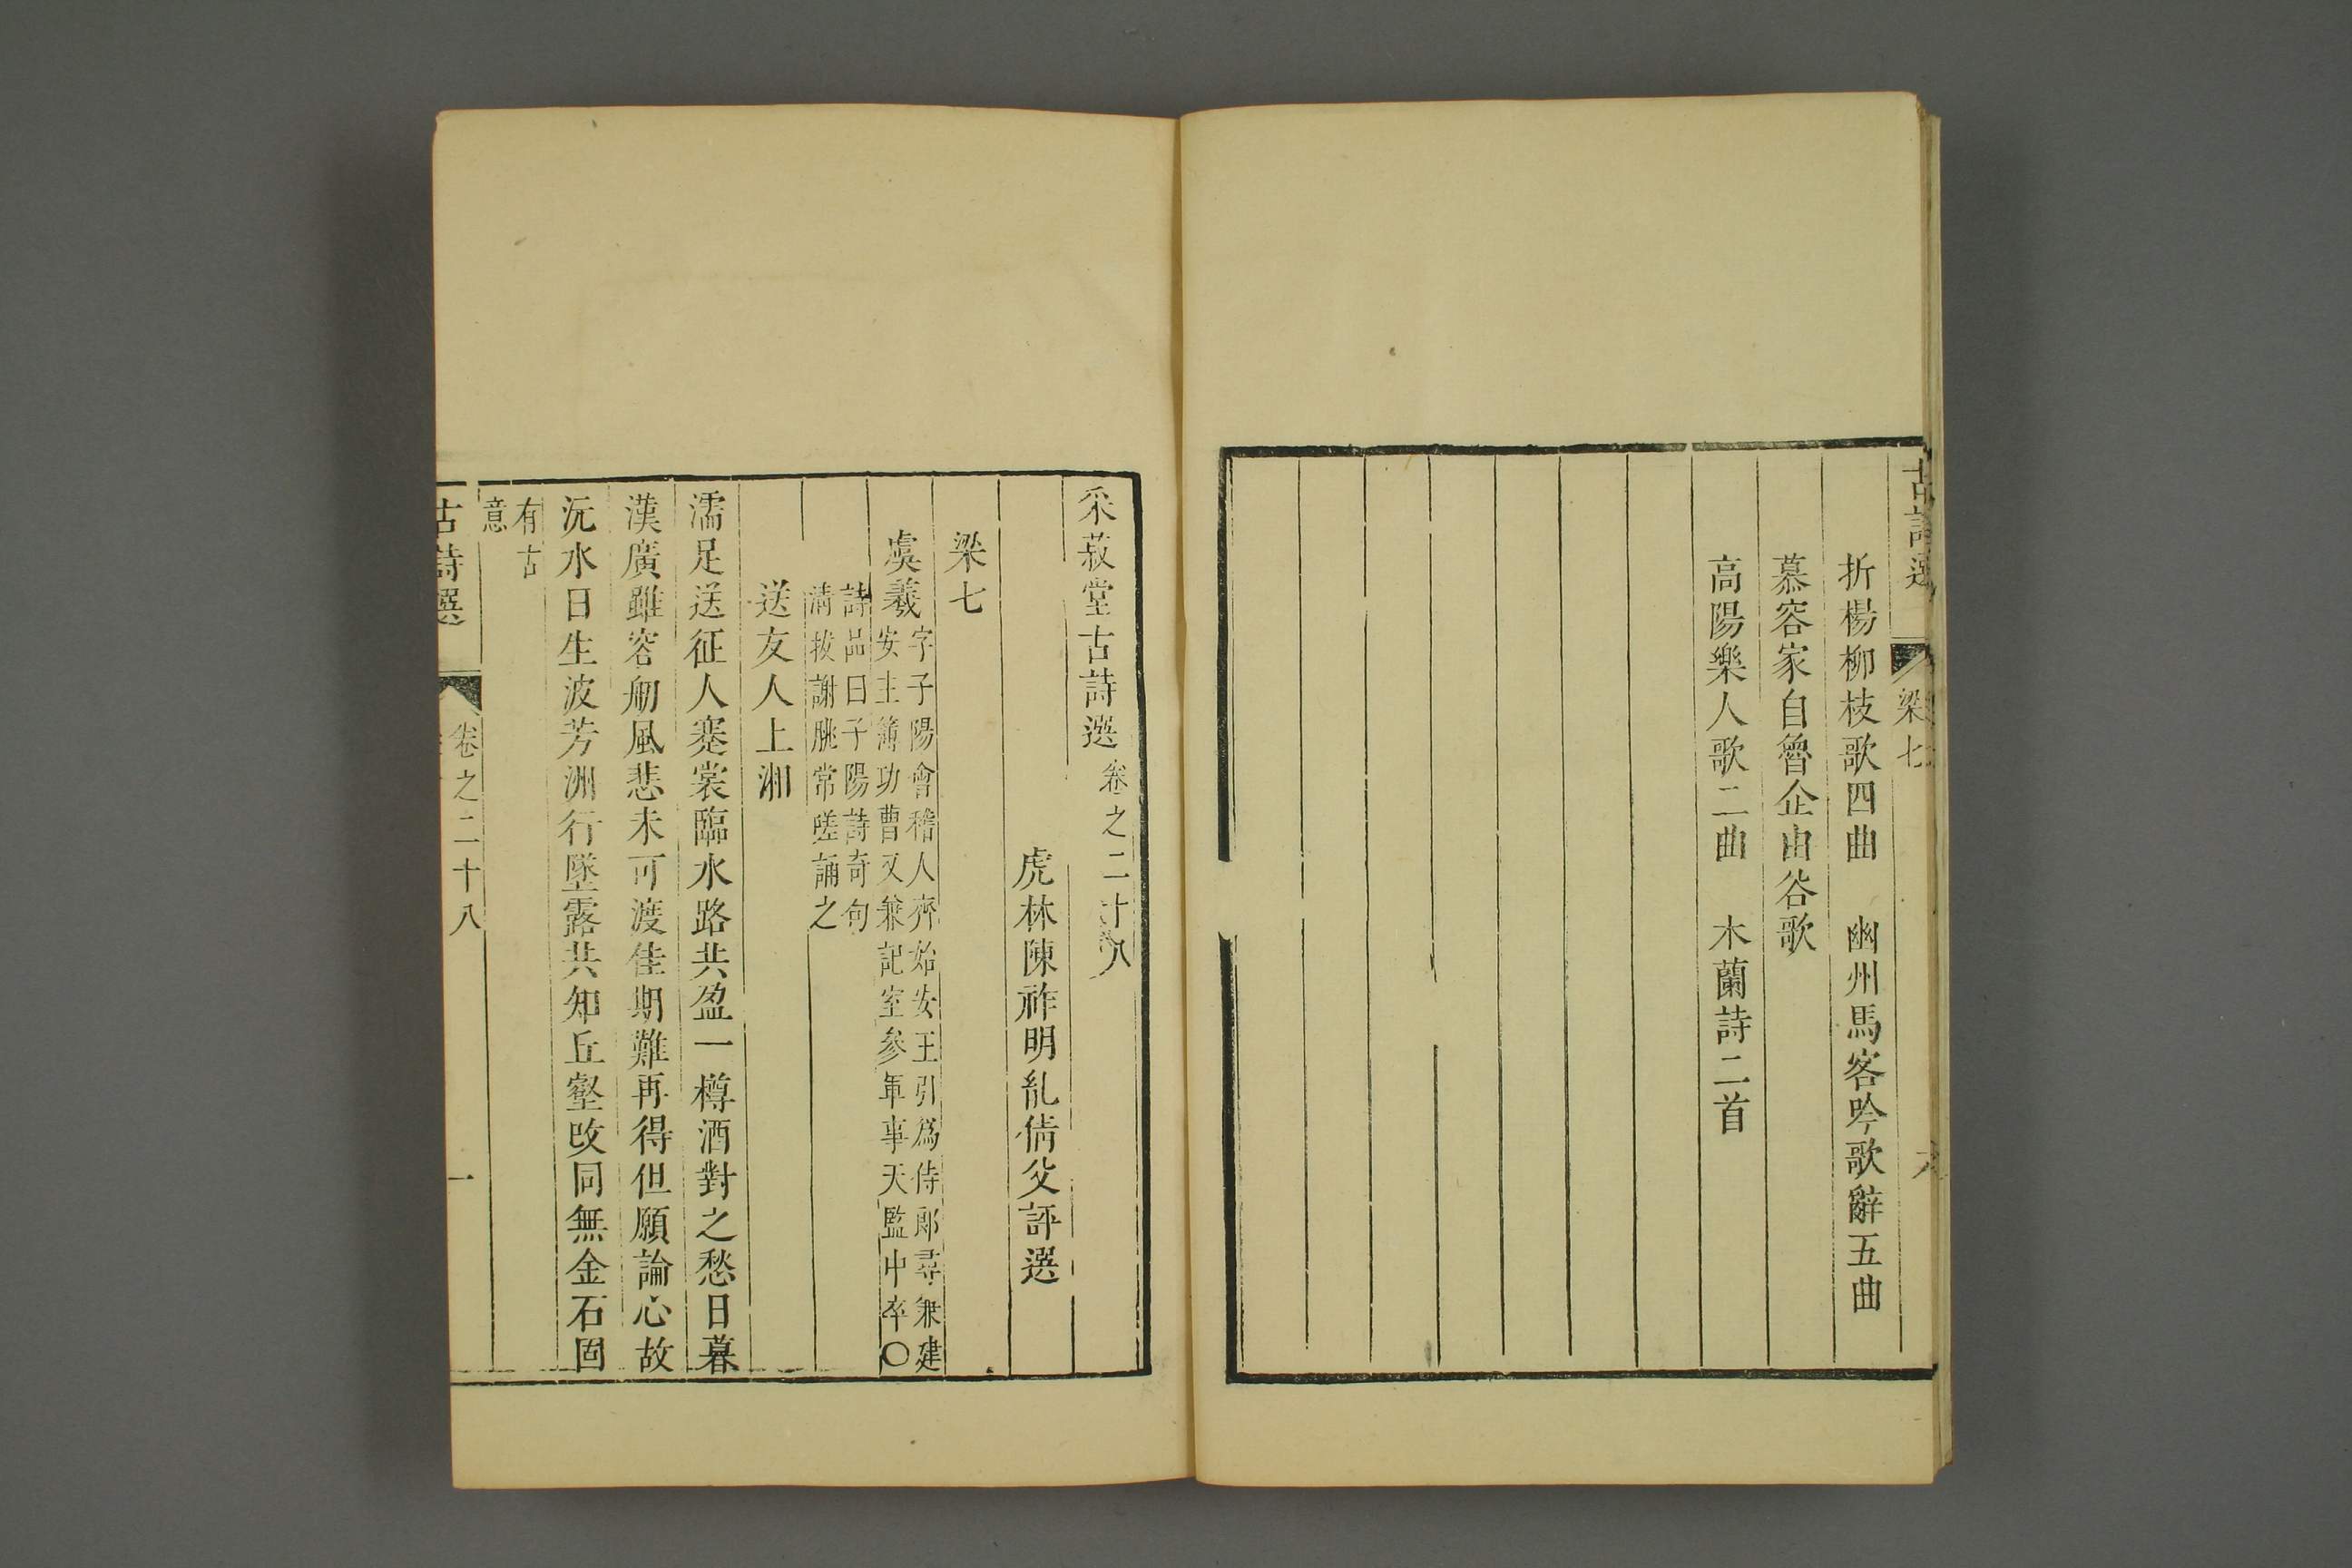 古詩選 梁七 六
折楊柳枝歌四曲 幽州馬客吟歌辭五曲
慕容家自魯企由谷歌
高陽樂人歌二曲 木蘭詩二首
采菽堂古詩選卷之二十八
虎林陳祚明胤倩父評選
梁七
虞羲字子陽會稽人齊始安王引爲侍郎尋兼建
安主簿功曹又兼記室參軍事天監中卒〇
詩品曰子陽詩奇句
清拔謝朓常嗟誦之
送友人上湘
濡足送征人蹇裳臨水路共盈一樽酒對之愁日暮
漢廣雖容舠風悲未可渡佳期難再得但願論心故
沅水日生波芳洲行墜露共知丘壑改同無金石固
有古
意
古詩選 卷之二十八 一